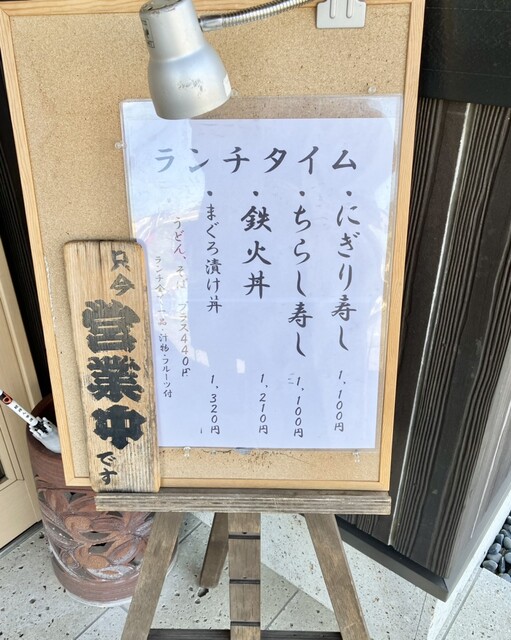 ランチタイム
・にぎり寿し 1,100円
・ちらし寿し 1,100円
・鉄火丼 1,210円
・まぐろ漬け丼 1,320円
うどん、そば プラス440円
ランチ 一品・汁物・フルーツ付
只今
営業中
です